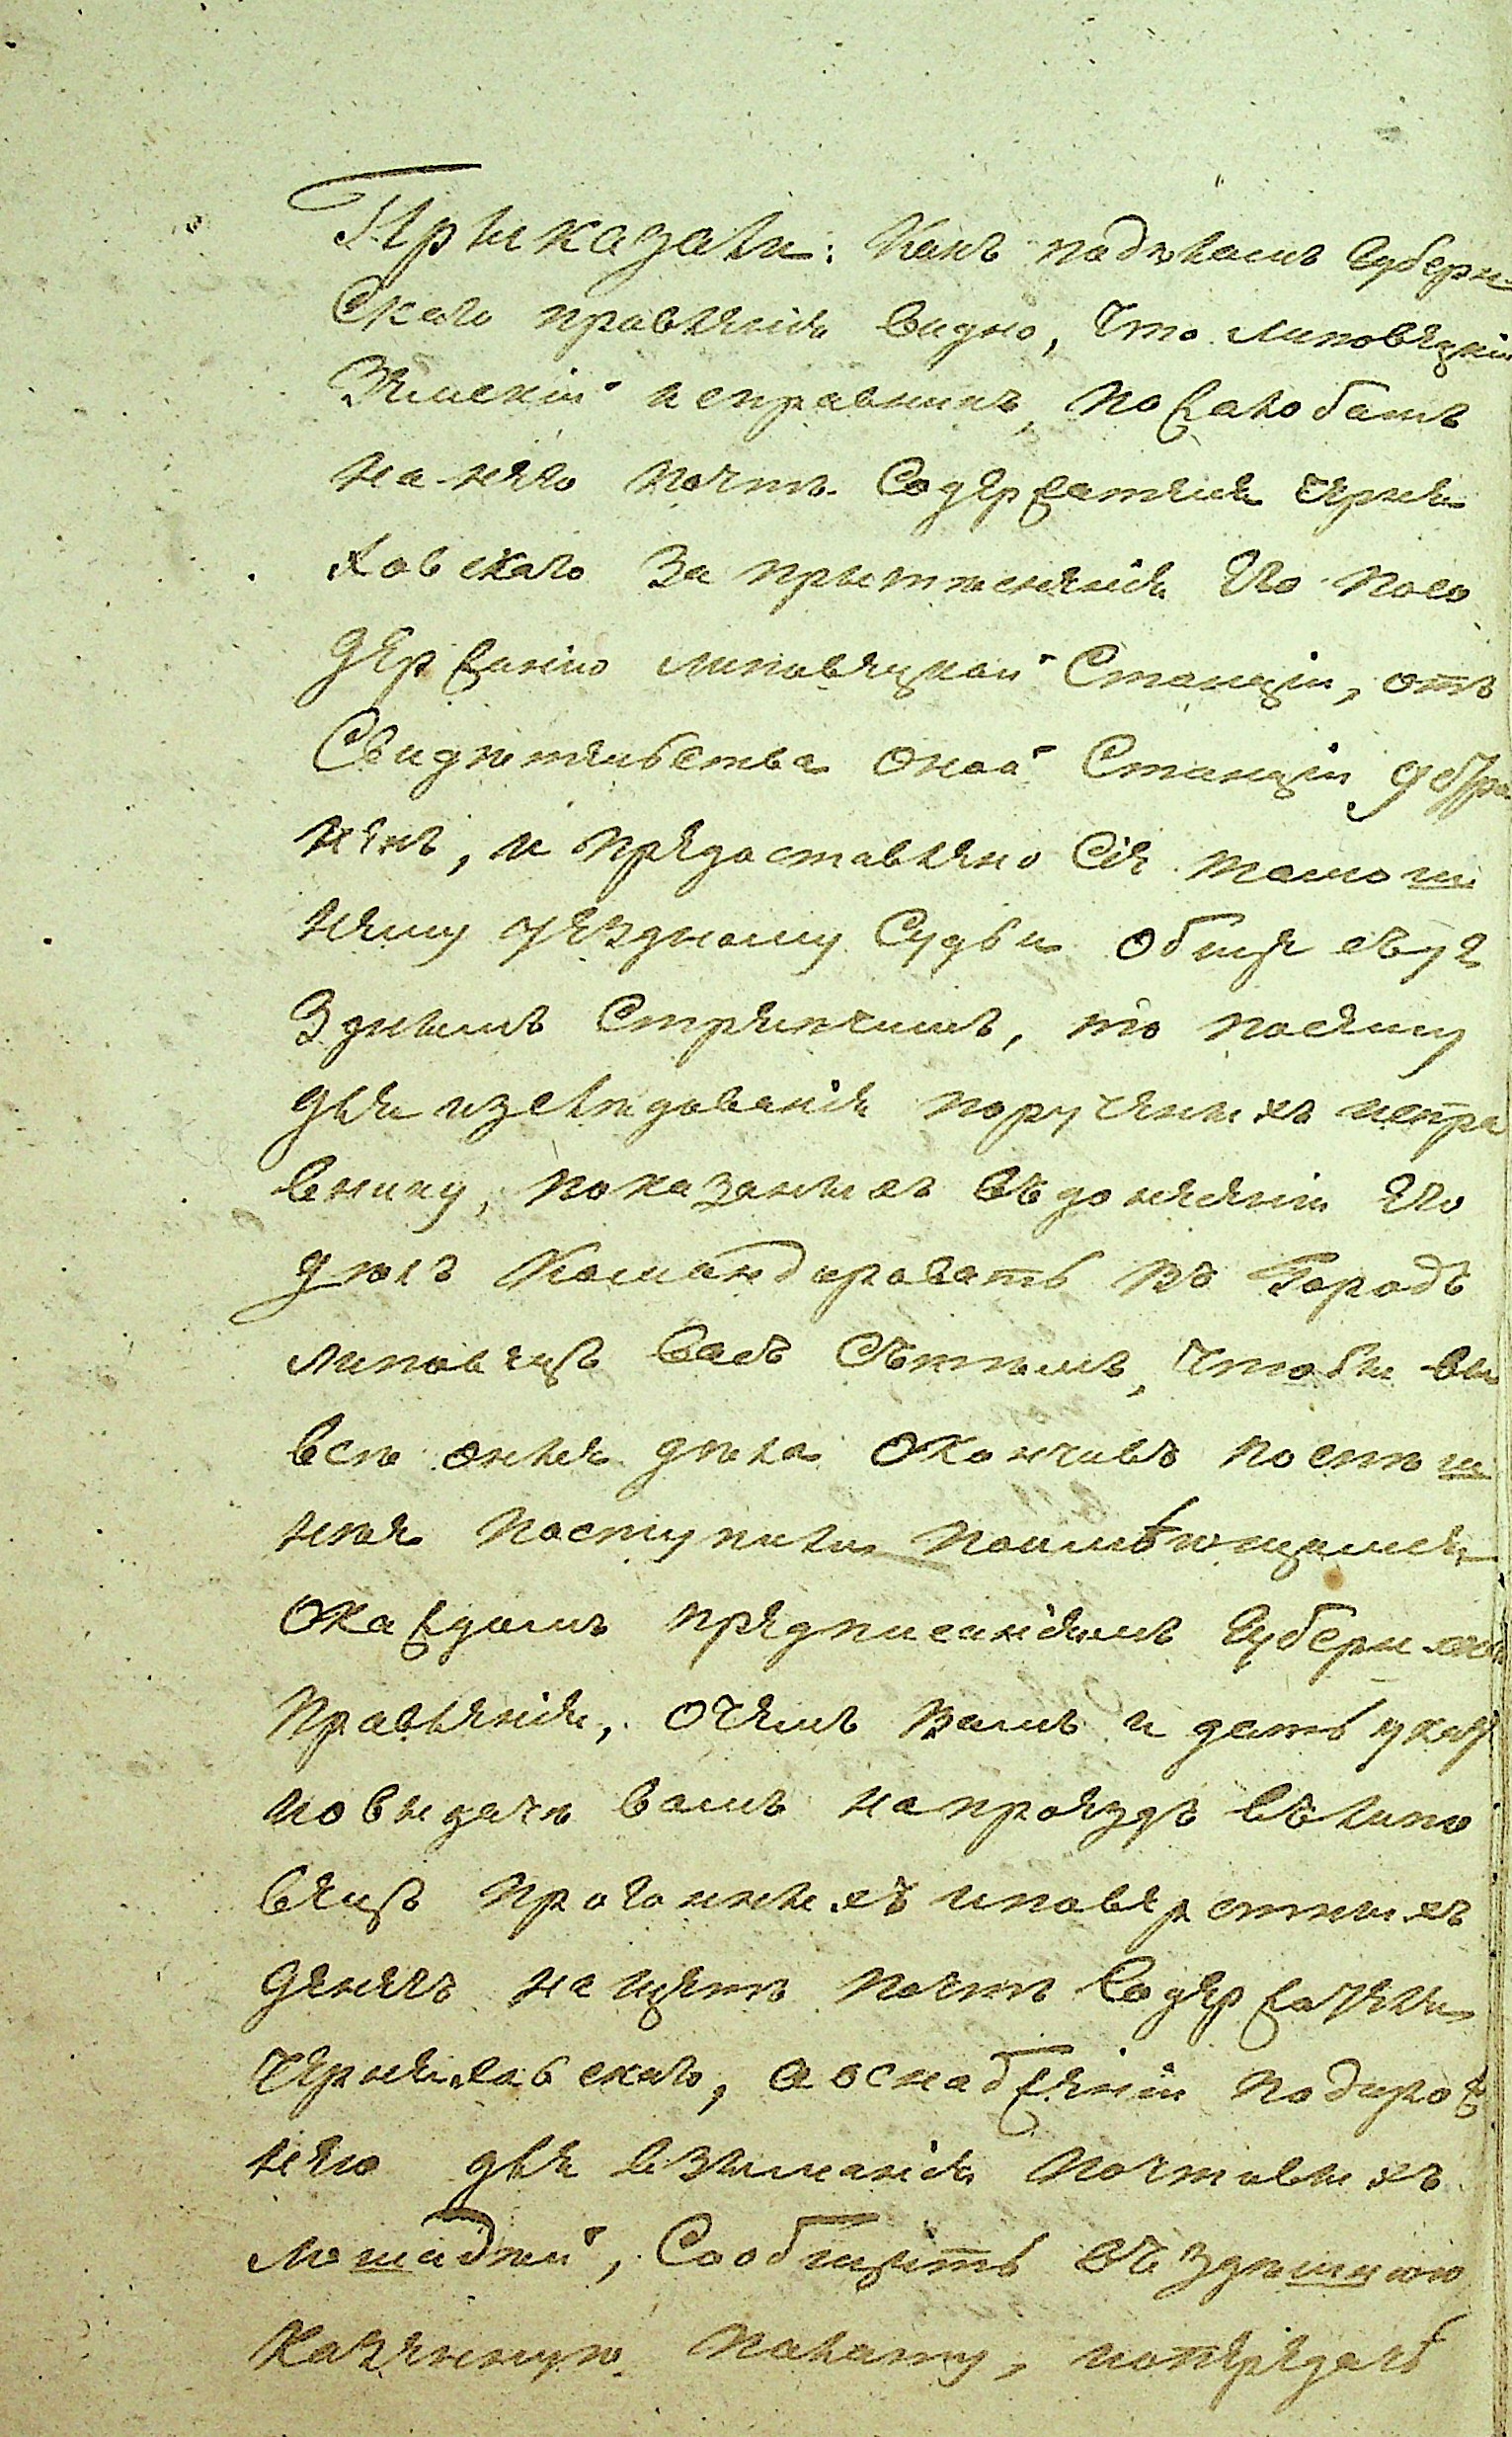 Приказали: Какъ подѣламъ Губерн
Скаго правленія видно, Что липовецкій
Земскій исправникъ, по жалобамъ
на него почт. Содержателя Черня
ховскаго За притѣсненія Его посо
держанію липовецкой Станціи, отъ
Свидѣтельства оной Станціи устра
ненъ, и предоставлено Сіе тамош
нему уездному Судьи обще съуе
Зднымъ Стряпчимъ, то посему
для изслѣдованія порученныхъ испра
внику, показаныхъ въдонесеніи Его
дѣлъ Командировать въ Городъ
липовецъ васъ Стѣмъ, Чтобы вы
всѣ оные дѣла окончивъ поспѣш
нѣе поступили поимѣющимся
окаждомъ предписаніямъ Губернскаго
правленія, очемъ вамъ и дать указъ
повыдачѣ вамъ напроездъ въ липо
вецъ прогонныхъ иповерстныхъ
денегъ на щетъ почтъ Содержателя
Черняховскаго, а оснабженіи подорож
нею для взыманія почтовыхъ
лошадей, Сообщить въ здѣшнюю
Казенную палату, и опередать